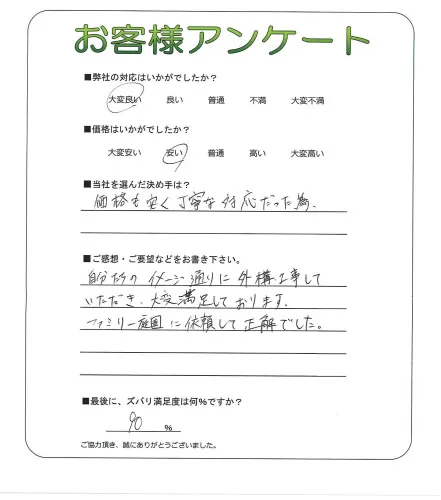 お客様アンケート
■弊社の対応はいかがでしたか？
大変良い 良い 普通 不満 大変不満
■価格はいかがでしたか？
大変安い 安い 普通 高い 大変高い
■当社を選んだ決め手は？
価格も安く丁寧な対応だった為.
■ご感想・ご要望などをお書き下さい。
自分たちの イメージ通りに 外構工事して
いただき、大変満足しております.
ファミリー庭園に依頼して正解でした。
■最後に、ズバリ満足度は何%ですか？
90 %
ご協力頂き、誠にありがとうございました。